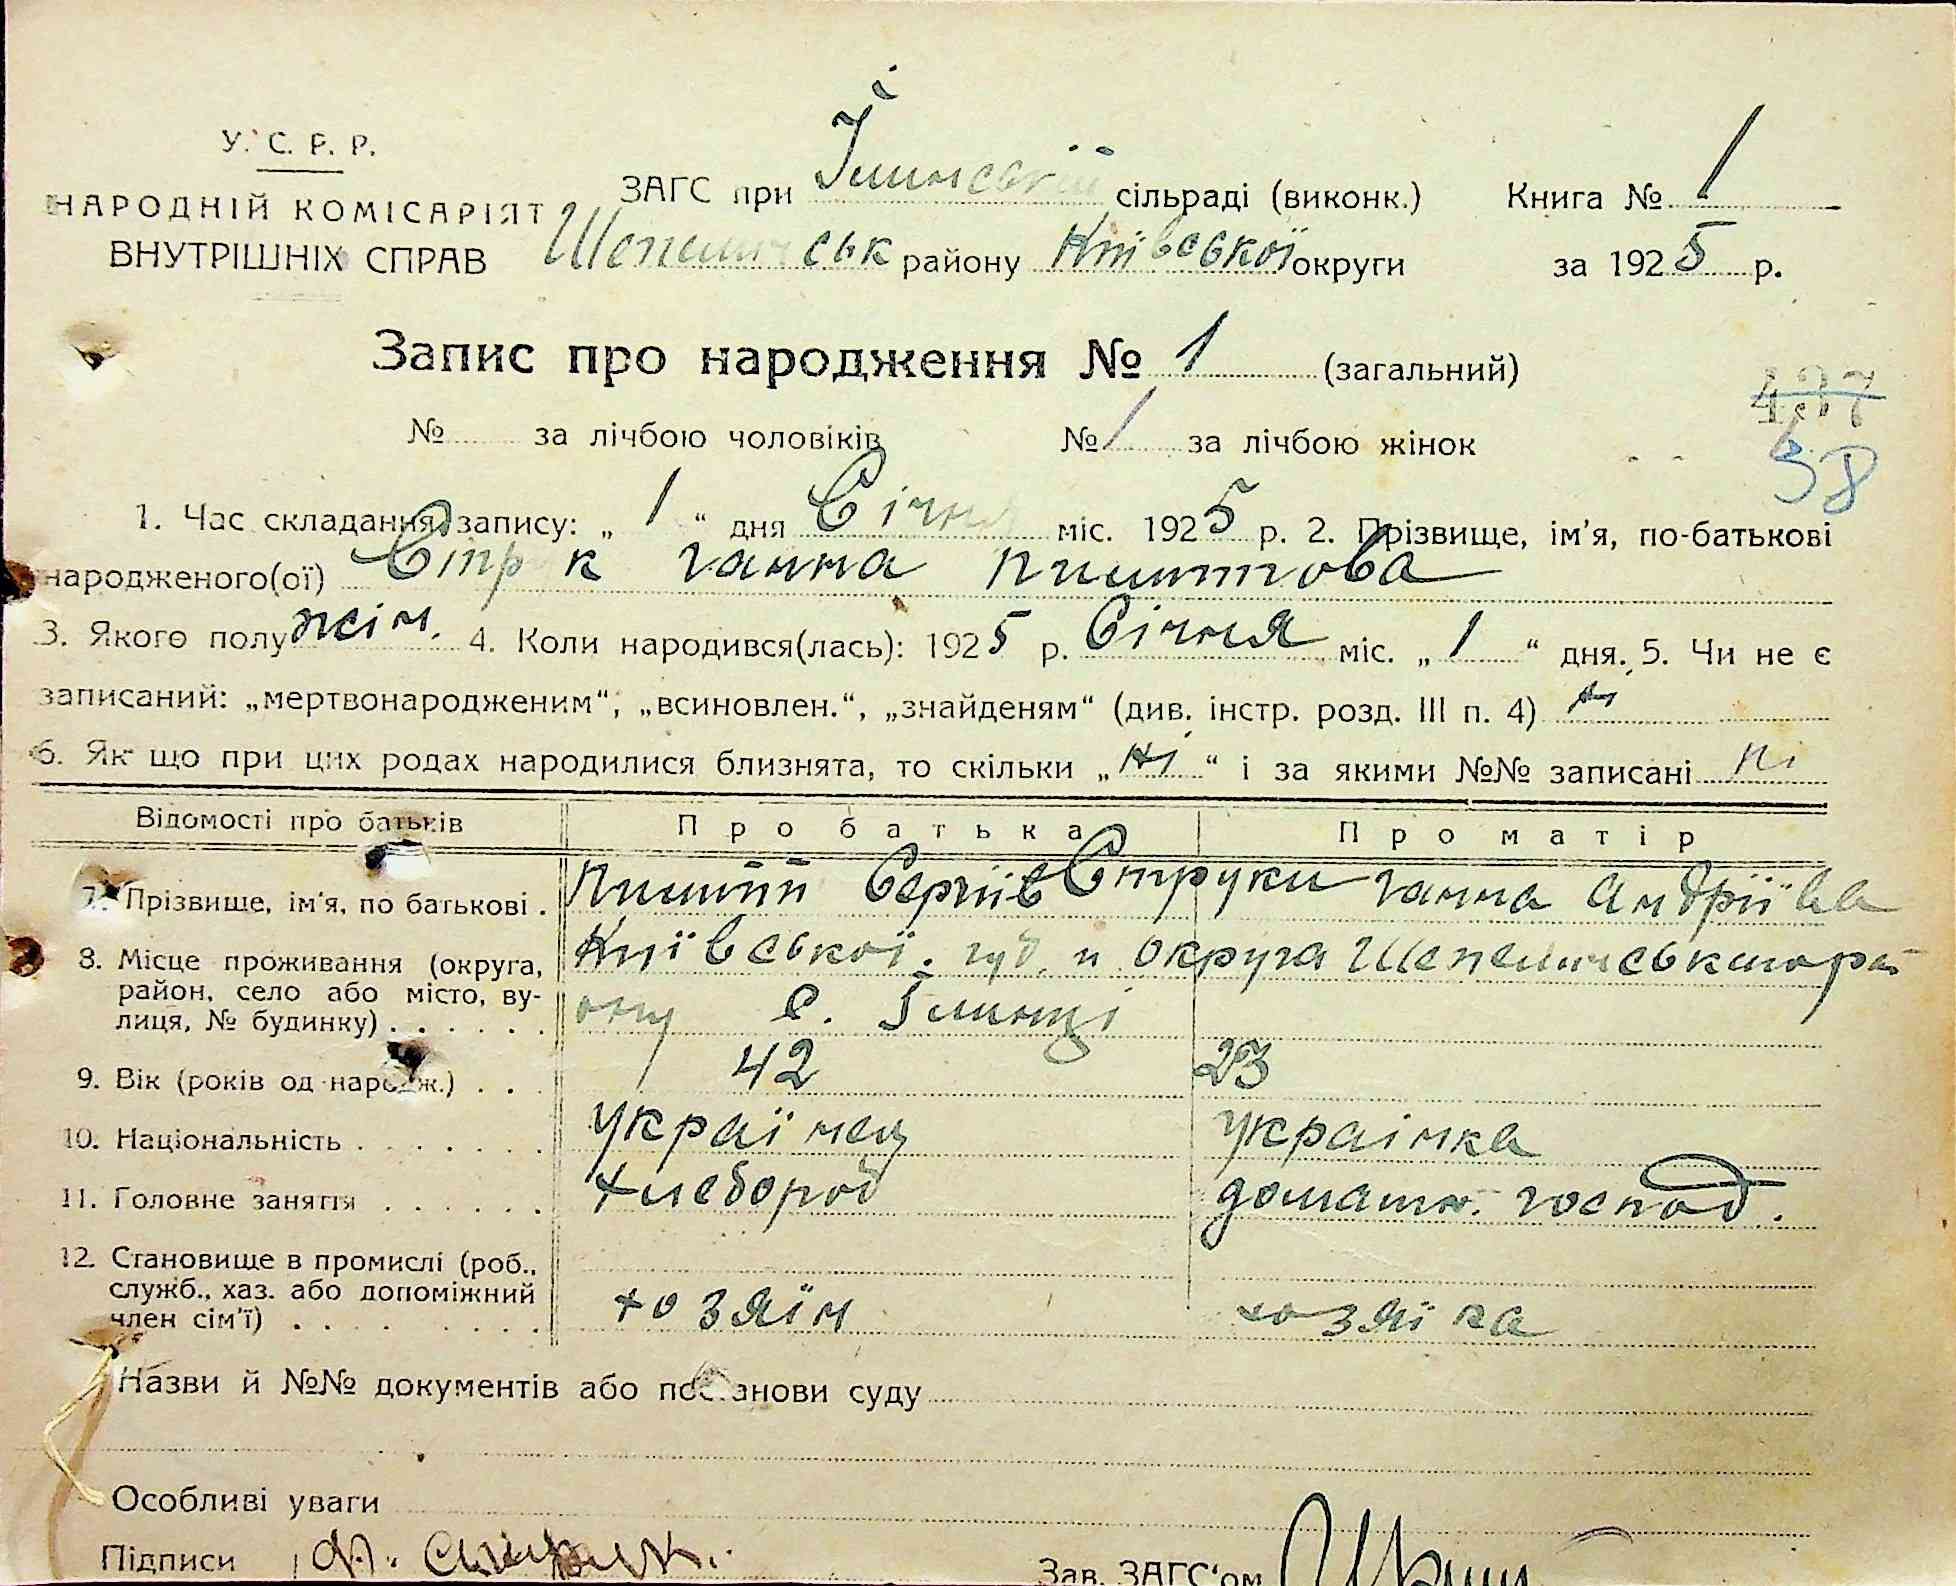 У. С. Р. Р.
НАРОДНІЙ КОМІСАРІЯТ
ВНУТРІШНІХ СПРАВ
ЗАГС при сільраді (виконк.)
Шепелич ськ району Київської округи
Книга № 1
за 1925 р.
Запис про народження № 1 (загальний)
№ за лічбою чоловіків № 1 за лічбою жінок
437
38
1. Час складання запису: „ 1 “ дня Січня міс. 1925 р. 2. Прізвище, ім'я, по-батькові
народженого(ої) Стр к ганна
3. Якого полу жін. 4. Коли народився(лась): 1925 р. Січня міс. „ 1 “ дня. 5. Чи не є
записаний: „мертвонародженим“, „всиновлен.“, „знайденям“ (див. інстр. розд. III п. 4) ні
6. Як що при цих родах народилися близнята, то скільки „ ні “ і за якими №№ записані ні
Відомості про батьків Про батька Про матір
7. Прізвище, ім'я, по батькові . Сергіїв Струки ганна Андріївa
8. Місце проживання (округа, Київської губ. и округа
район, село або місто, ву- с. Ілинці
лиця, № будинку) . . . . . .
9. Вік (років од народж.) . . . 42 23
10. Національність . . . . . . . українец українка
11. Головне заняття . . . . . . хлебороб домашн. господ.
12. Становище в промислі (роб.,
служб., хаз. або допоміжний
член сім'ї) . . . . . . . . хозяїн хозяїка
Назви й №№ документів або постанови суду
Особливі уваги
Підписи Зав. ЗАГС'ом